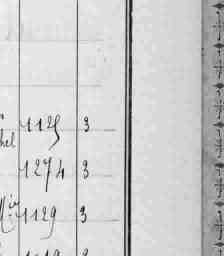 hel 1125 3
1274 3
1129 3